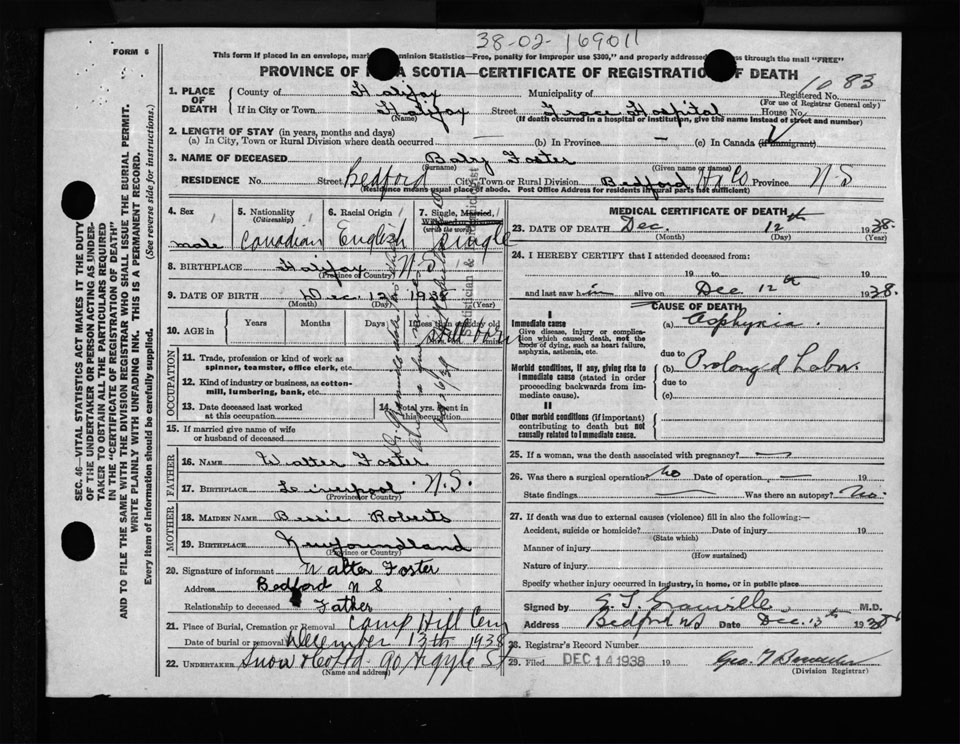 38-02-169011
FORM 6
This form if placed in an envelope, mar Dominion Statistics—Free, penalty for improper use $300", and properly addresse ss through the mail "FREE"
PROVINCE OF A SCOTIA—CERTIFICATE OF REGISTRATION OF DEATH
1083
1. PLACE OF DEATH
County of Halifax Municipality of Registered No.
(For use of Registrar General only)
If in City or Town Halifax Street Grace Hospital House No.
(Name) (If death occurred in a hospital or institution, give the name instead of street and number)
2. LENGTH OF STAY (in years, months and days)
(a) In City, Town or Rural Division where death occurred — (b) In Province — (c) In Canada (if immigrant)
3. NAME OF DECEASED Baby Foster
(Surname) (Given name or names)
RESIDENCE No. Street Bedford City, Town or Rural Division Bedford Hx Co Province N-S
(Residence means usual place of abode. Post Office Address for residents in rural parts not sufficient)
4. Sex male
5. Nationality (Citizenship) Canadian
6. Racial Origin English
7. Single, Married, Widowed or Divorced (write the word) Single
8. BIRTHPLACE Halifax N.S
(Province or Country)
9. DATE OF BIRTH Dec. 12 1938
(Month) (Day) (Year)
10. AGE in Years Months Days If less than one day old
Stillborn
OCCUPATION
11. Trade, profession or kind of work as spinner, teamster, office clerk, etc.
12. Kind of industry or business, as cotton-mill, lumbering, bank, etc.
13. Date deceased last worked at this occupation
14. Total yrs. spent in this occupation
15. If married give name of wife or husband of deceased
FATHER
16. NAME Walter Foster
17. BIRTHPLACE Liverpool N.S.
(Province or Country)
MOTHER
18. MAIDEN NAME Bessie Roberts
19. BIRTHPLACE Newfoundland
(Province or Country)
20. Signature of informant Walter Foster
Address Bedford N S
Relationship to deceased Father
21. Place of Burial, Cremation or Removal Camp Hill Cem
Date of burial or removal December 13th 1938
22. UNDERTAKER Snow & Co Ltd. 90 Argyle St
(Name and address)
MEDICAL CERTIFICATE OF DEATH
23. DATE OF DEATH Dec. 12th 1938.
(Month) (Day) (Year)
24. I HEREBY CERTIFY that I attended deceased from:
19 to 19
and last saw him alive on Dec 12th 1938.
CAUSE OF DEATH
I
Immediate cause
Give disease, injury or complication which caused death, not the mode of dying, such as heart failure, asphyxia, asthenia, etc.
(a) Asphyxia.
due to
Morbid conditions, if any, giving rise to immediate cause (stated in order proceeding backwards from immediate cause)
(b) Prolonged Labor.
due to
(c)
II
Other morbid conditions (if important) contributing to death but not causally related to immediate cause.
25. If a woman, was the death associated with pregnancy? —
26. Was there a surgical operation? No Date of operation — 19
State findings — Was there an autopsy? No.
27. If death was due to external causes (violence) fill in also the following:—
Accident, suicide or homicide? Date of injury 19
(State which)
Manner of injury
(How sustained)
Nature of injury
Specify whether injury occurred in industry, in home, or in public place
Signed by E. T. Granville M.D.
Address Bedford NS Date Dec. 13th 1938
28. Registrar's Record Number
29. Filed DEC 14 1938 19
(Division Registrar)
SEC. 46—VITAL STATISTICS ACT MAKES IT THE DUTY
OF THE UNDERTAKER OR PERSON ACTING AS UNDER-
TAKER TO OBTAIN ALL THE PARTICULARS REQUIRED
IN THE "CERTIFICATE OF REGISTRATION OF DEATH"
AND TO FILE THE SAME WITH THE DIVISION REGISTRAR WHO SHALL ISSUE THE BURIAL PERMIT.
WRITE PLAINLY WITH UNFADING INK. THIS IS A PERMANENT RECORD.
Every item of information should be carefully supplied. (See reverse side for instructions.)